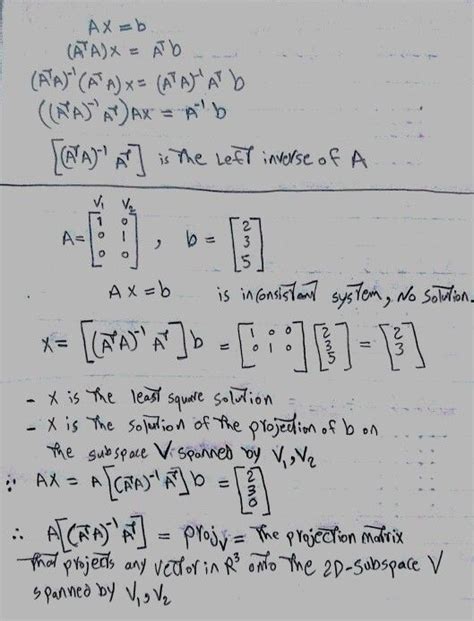 AX = b
(AᵀA)X = Aᵀb
(AᵀA)⁻¹(AᵀA)X = (AᵀA)⁻¹Aᵀb
((AᵀA)⁻¹Aᵀ)AX = A⁻¹b
[(AᵀA)⁻¹Aᵀ] is The Left inverse of A
V₁ V₂
A = [1 0; 0 1; 0 0], b = [2; 3; 5]
AX = b is inconsistant system, No Solution.
X = [(AᵀA)⁻¹Aᵀ]b = [1 0 0; 0 1 0][2; 3; 5] = [2; 3]
- X is The least square solution
- X is The solution of The projection of b on
The subspace V spanned by V₁, V₂
∴ AX = A[(AᵀA)⁻¹Aᵀ]b = [2; 3; 0]
∴ A[(AᵀA)⁻¹Aᵀ] = projᵥ = The projection matrix
That projects any vector in R³ onto The 2D-Subspace V
spanned by V₁, V₂